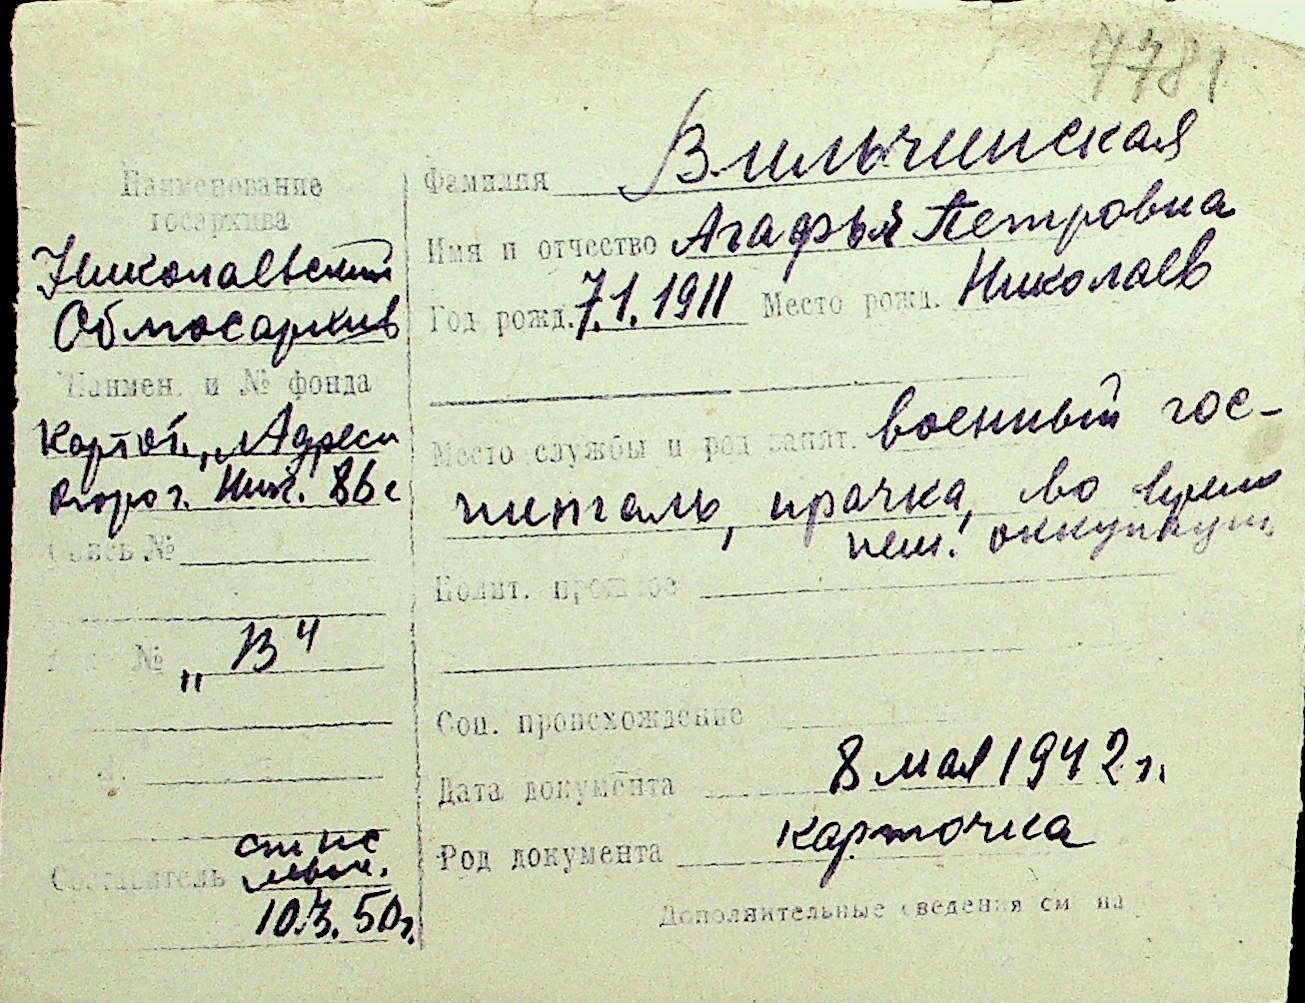 7781
Наименование
госархива
Николаевский
Облгосархив
Наимен. и № фонда
Картот. „Адресн
Опись №
№ „В"
Составитель
10.3.50г.
Фамилия Вильчинская
Имя и отчество Агафья Петровна
Год рожд. 7.1.1911 Место рожд. Николаев
Место службы и род занят. военный гос-
питаль, прачка, во время
нем. оккупац.
Полит. прошлое
Соц. происхождение
Дата документа 8 мая 1942 г.
Род документа карточка
Дополнительные сведения см на